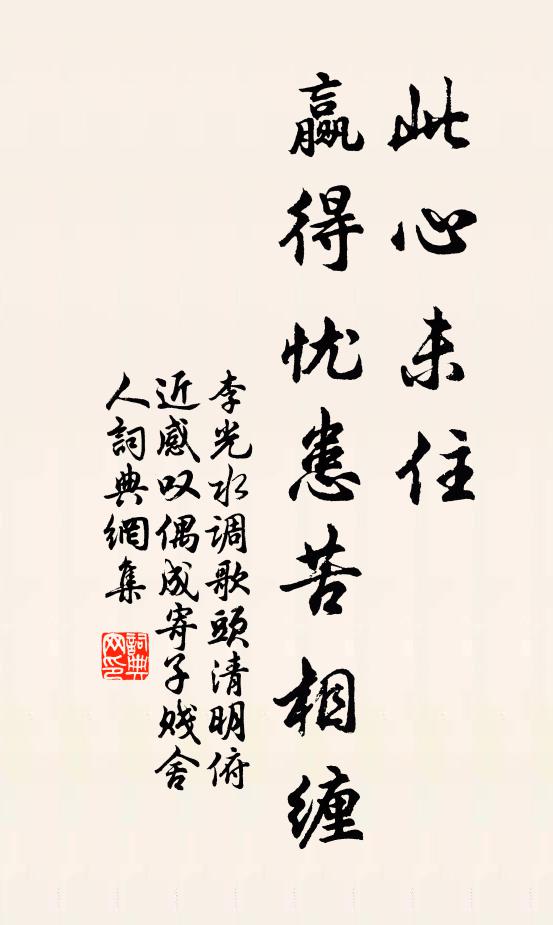 此心未住
赢得忧患苦相缠
李光水调歌頭清明俯
近感叹偶成寄子贱舍
人詞典網集
詞典网印